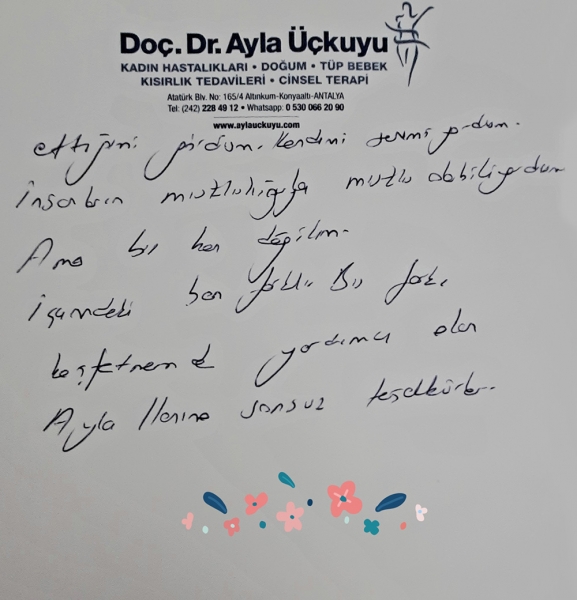 Doç. Dr. Ayla Üçkuyu
KADIN HASTALIKLARI • DOĞUM • TÜP BEBEK
KISIRLIK TEDAVİLERİ • CİNSEL TERAPİ
Atatürk Blv. No: 165/4 Altınkum-Konyaaltı-ANTALYA
Tel: (242) 228 49 12 • Whatsapp: 0 530 066 20 90
www.aylauckuyu.com
ettiğini Kendimi
İnsanların mutluluğuyla mutlu olabiliyordum
Ama bu ben değilim.
İçimdeki ben farklı Bu farkı
keşfetmemde yardımcı olan
Ayla Hanıma sonsuz teşekkürler.